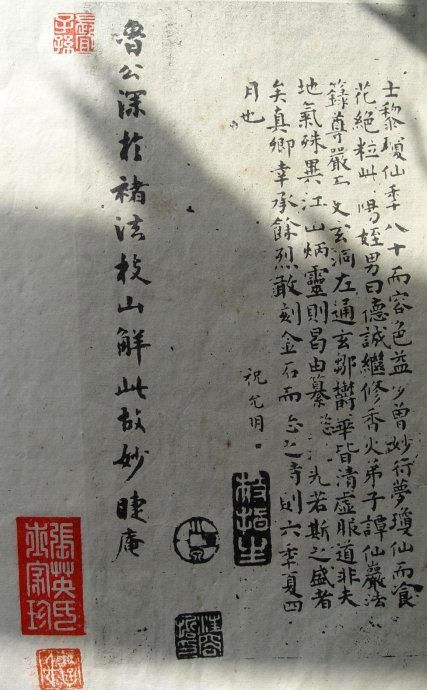 士黎瓊仙季八十而容色益少曾妙行夢瓊仙而食
花絕粒陽姪男曰德誠繼修香火弟子譚仙巖法
籙尊嚴文玄洞左通玄鄒鬱華皆清虛服道非夫
地氣殊異江山炳靈則曷由纂光若斯之盛者
矣真卿幸承餘烈敢刻金石而志之時則六季夏四
月也
祝允明
枝指生
魯公深於褚法枝山解此故妙 睫庵
長宜子孫
張英氏
家珍